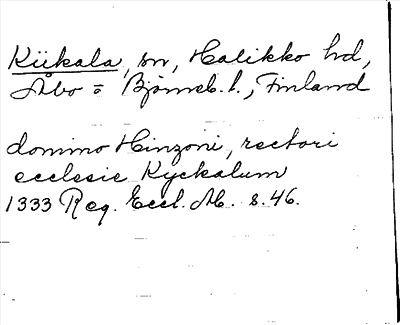 Kiikala, sn, Halikko hd,
Åbo = Björneb. l., Finland
domino Hinzoni, rectori
ecclesie Kyckalum
1333 Reg. Eccl. Ab. s. 46.